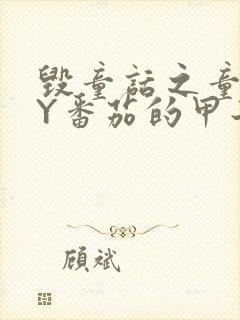 毁童话之童
Y番茄的甲
顾斌